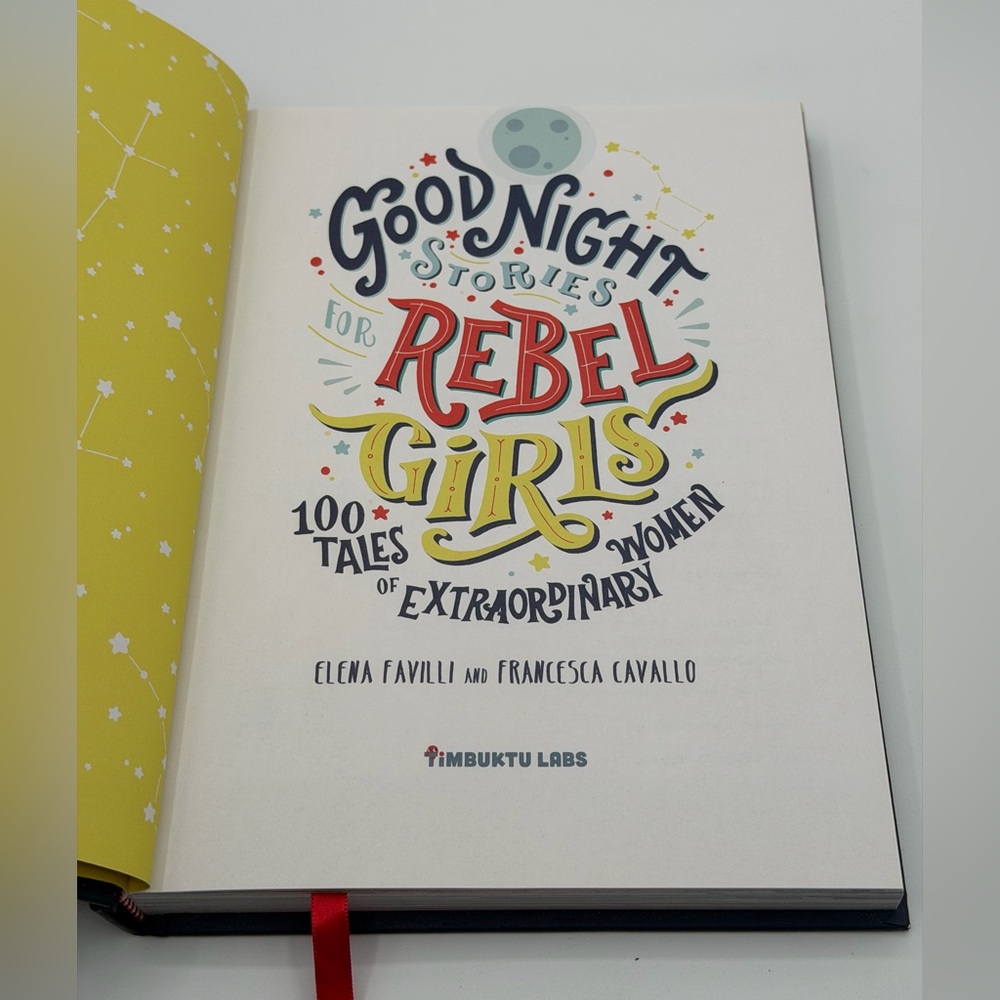 GOOD NIGHT
STORIES
FOR
REBEL
GiRLS
100
TALES
OF EXTRAORDINARY
WOMEN
ELENA FAVILLI AND FRANCESCA CAVALLO
TiMBUKTU LABS